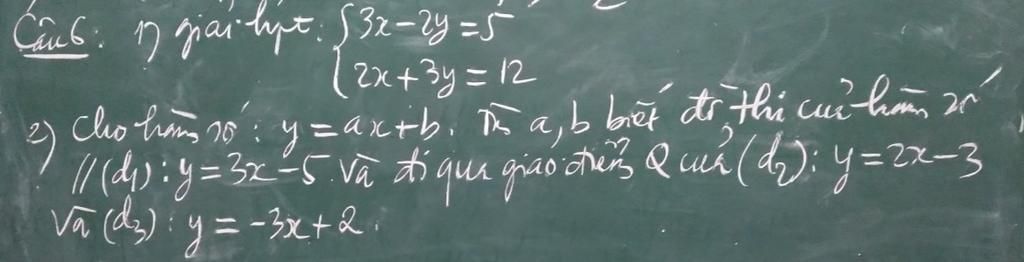 Câu 6: 1) giải hpt: { 3x - 2y = 5
2x + 3y = 12
2) Cho hàm số: y = ax + b. Tìm a, b biết đồ thị của hàm số
// (d1): y = 3x - 5 và đi qua giao điểm Q của (d2): y = 2x - 3
và (d3): y = -3x + 2.